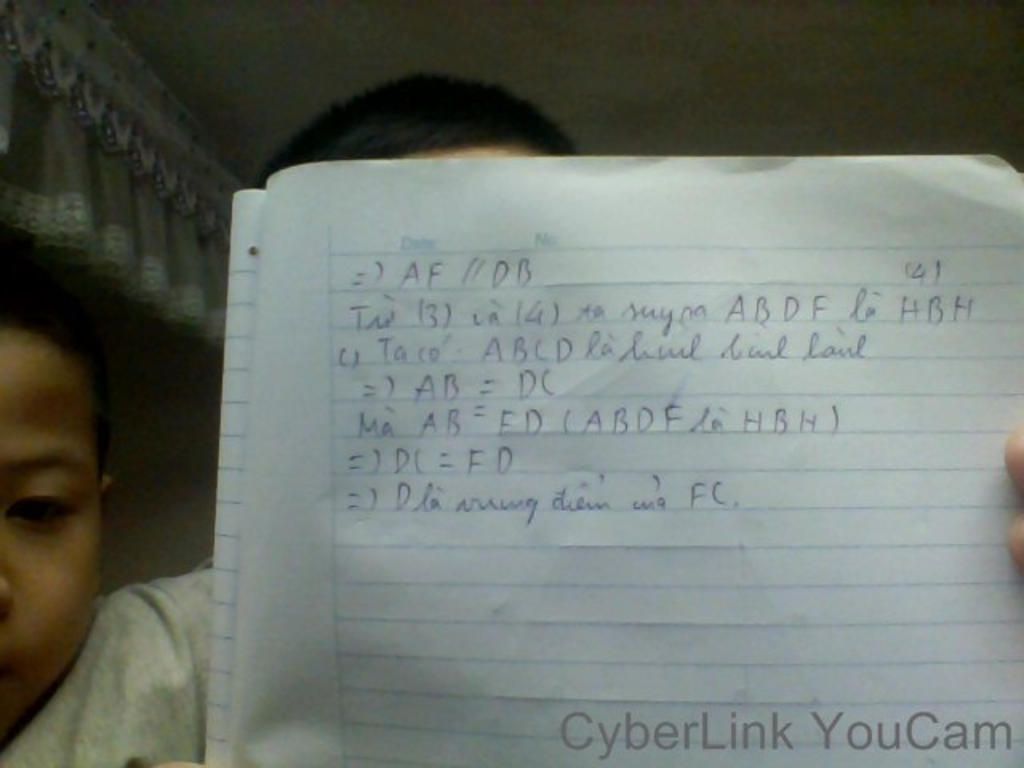 Date No
=) AF // DB (4)
Từ (3) và (4) ta suy ra ABDF là HBH
c) Ta có: ABCD là hình bình hành
=) AB = DC
Mà AB = FD (ABDF là HBH)
=) DC = FD
=) D là trung điểm của FC.
CyberLink YouCam